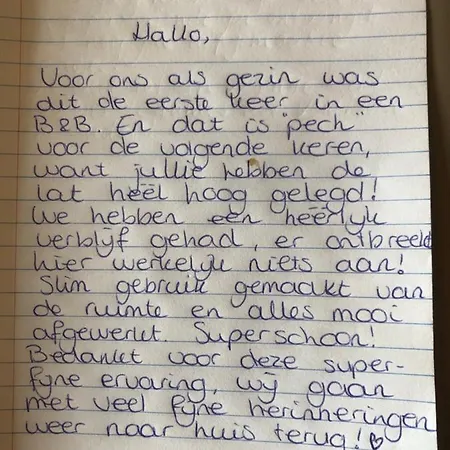 Hallo,
Voor ons als gezin was
dit de eerste keer in een
B&B. En dat is "pech"
voor de volgende keren,
want jullie hebben de
lat heël hoog gelegd!
We hebben een heërlijk
verblijf gehad, er ontbreekt
hier werkelijk niets aan!
Slim gebruik gemaakt van
de ruimte en alles mooi
afgewerkt. Superschoon!
Bedankt voor deze super-
fijne ervaring, wij gaan
met veel fijne herinneringen
weer naar huis terug! ♡